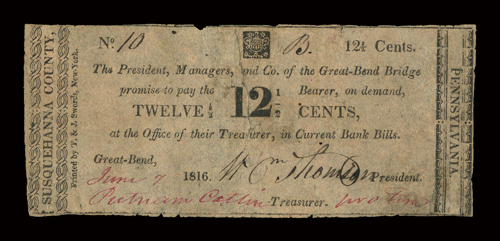 SUSQUEHANNA COUNTY,
Printed by T. & J. Swords, New-York.
No. 10 B. 12½ Cents.
The President, Managers, and Co. of the Great-Bend Bridge
promise to pay the Bearer, on demand,
TWELVE ½ 12 ½ CENTS,
at the Office of their Treasurer, in Current Bank Bills.
Great-Bend,
June 7 1816. Wm Thomson President.
Putnam Catlin Treasurer.
PENNSYLVANIA